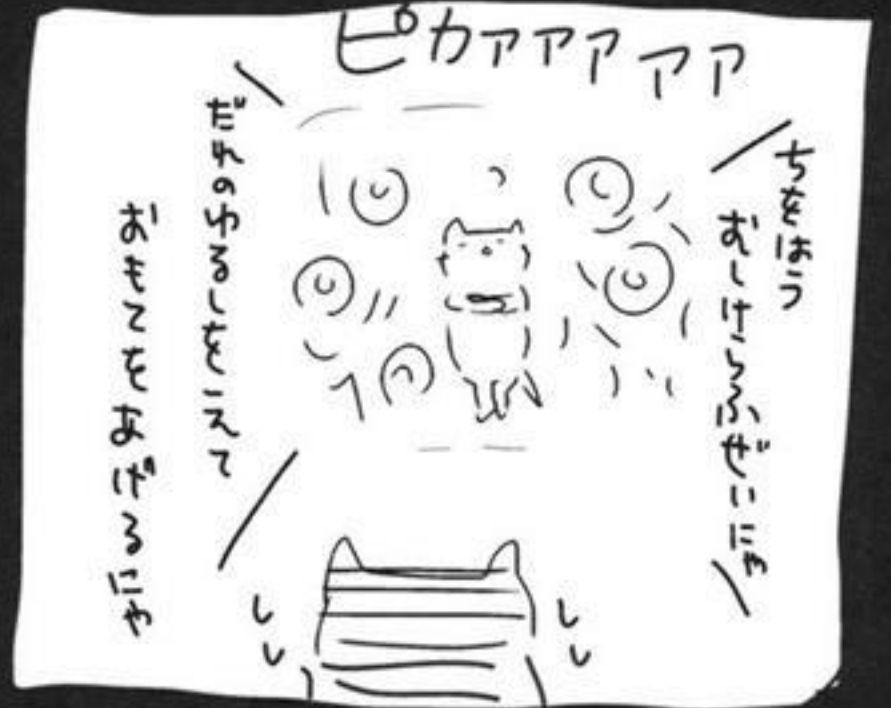 ピカァァァァァ
ちをはう
むしけらふぜいにゃ
だれのゆるしをえて
おもてをあげるにゃ